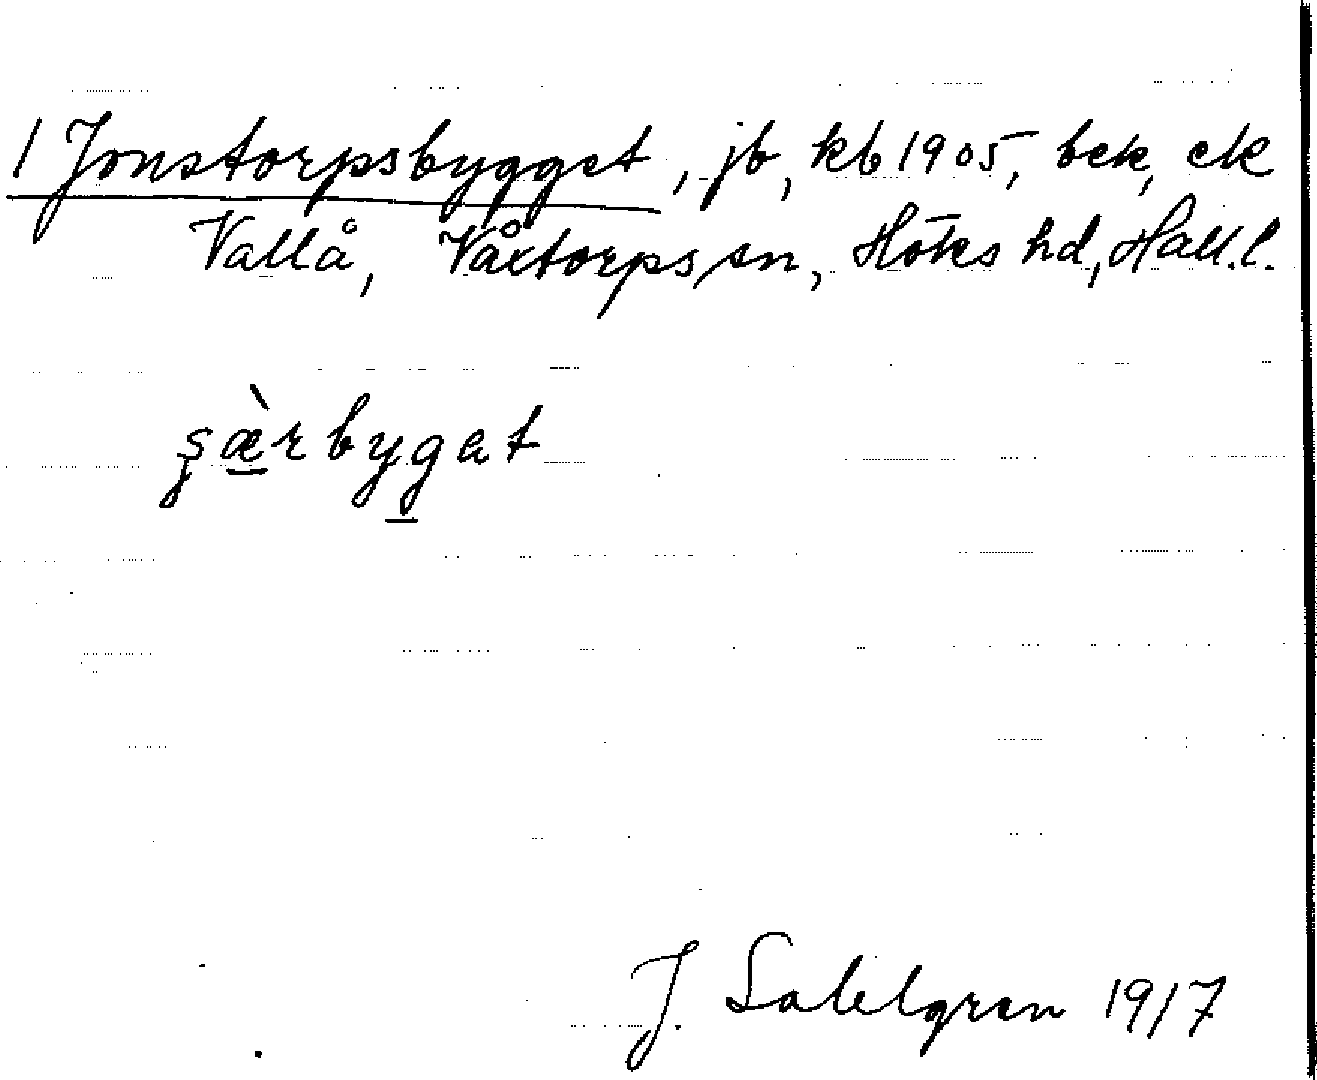 1 Jonstorpsbygget, jb, kb 1905, bek, ek
Vallå, Våxtorps sn, Höks hd, Hall. l.
şæ̀rbygat
J. Sahlgren 1917